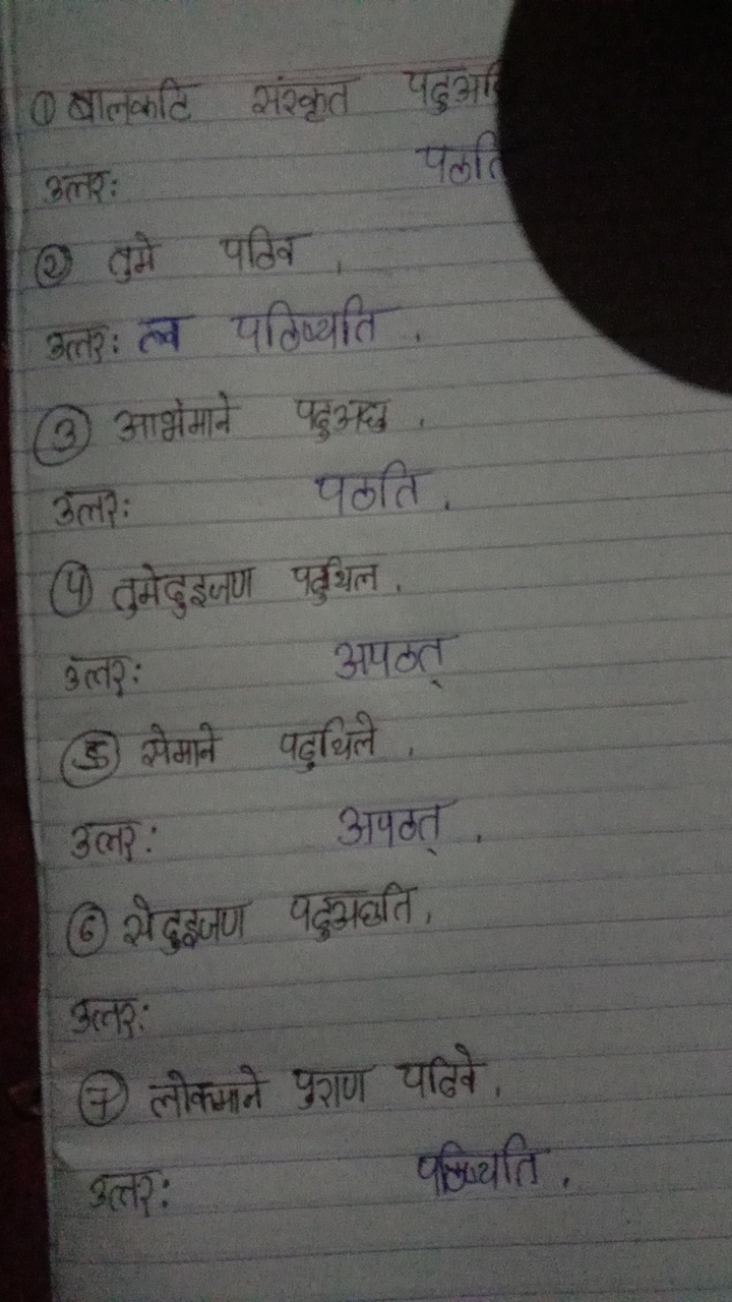 ① बालकटि संस्कृत पढुअ
उत्तर: पठति
② तुमे पठिव ,
उत्तर: त्व पठिष्यति .
③ आभेमाने पढुअछु .
उत्तर: पठति .
④ तुमेदुइजण पढुथिल .
उत्तर: अपठत्
⑤ सेमाने पढुथिले .
उत्तर: अपठत् .
⑥ सेदुइजण पढुअछति .
उत्तर:
⑦ लोकमाने पुराण पढिवे .
उत्तर: पठिष्यति .